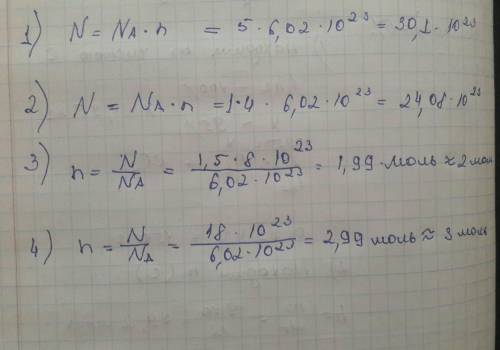 1) N = NA · n = 5 · 6,02 · 10²³ = 30,1 · 10²³
2) N = NA · n = 1 · 4 · 6,02 · 10²³ = 24,08 · 10²³
3) n = N/NA = 1,5 · 8 · 10²³ / 6,02 · 10²³ = 1,99 · моль ≈ 2 мол
4) n = N/NA = 18 · 10²³ / 6,02 · 10²³ = 2,99 моль ≈ 3 моль